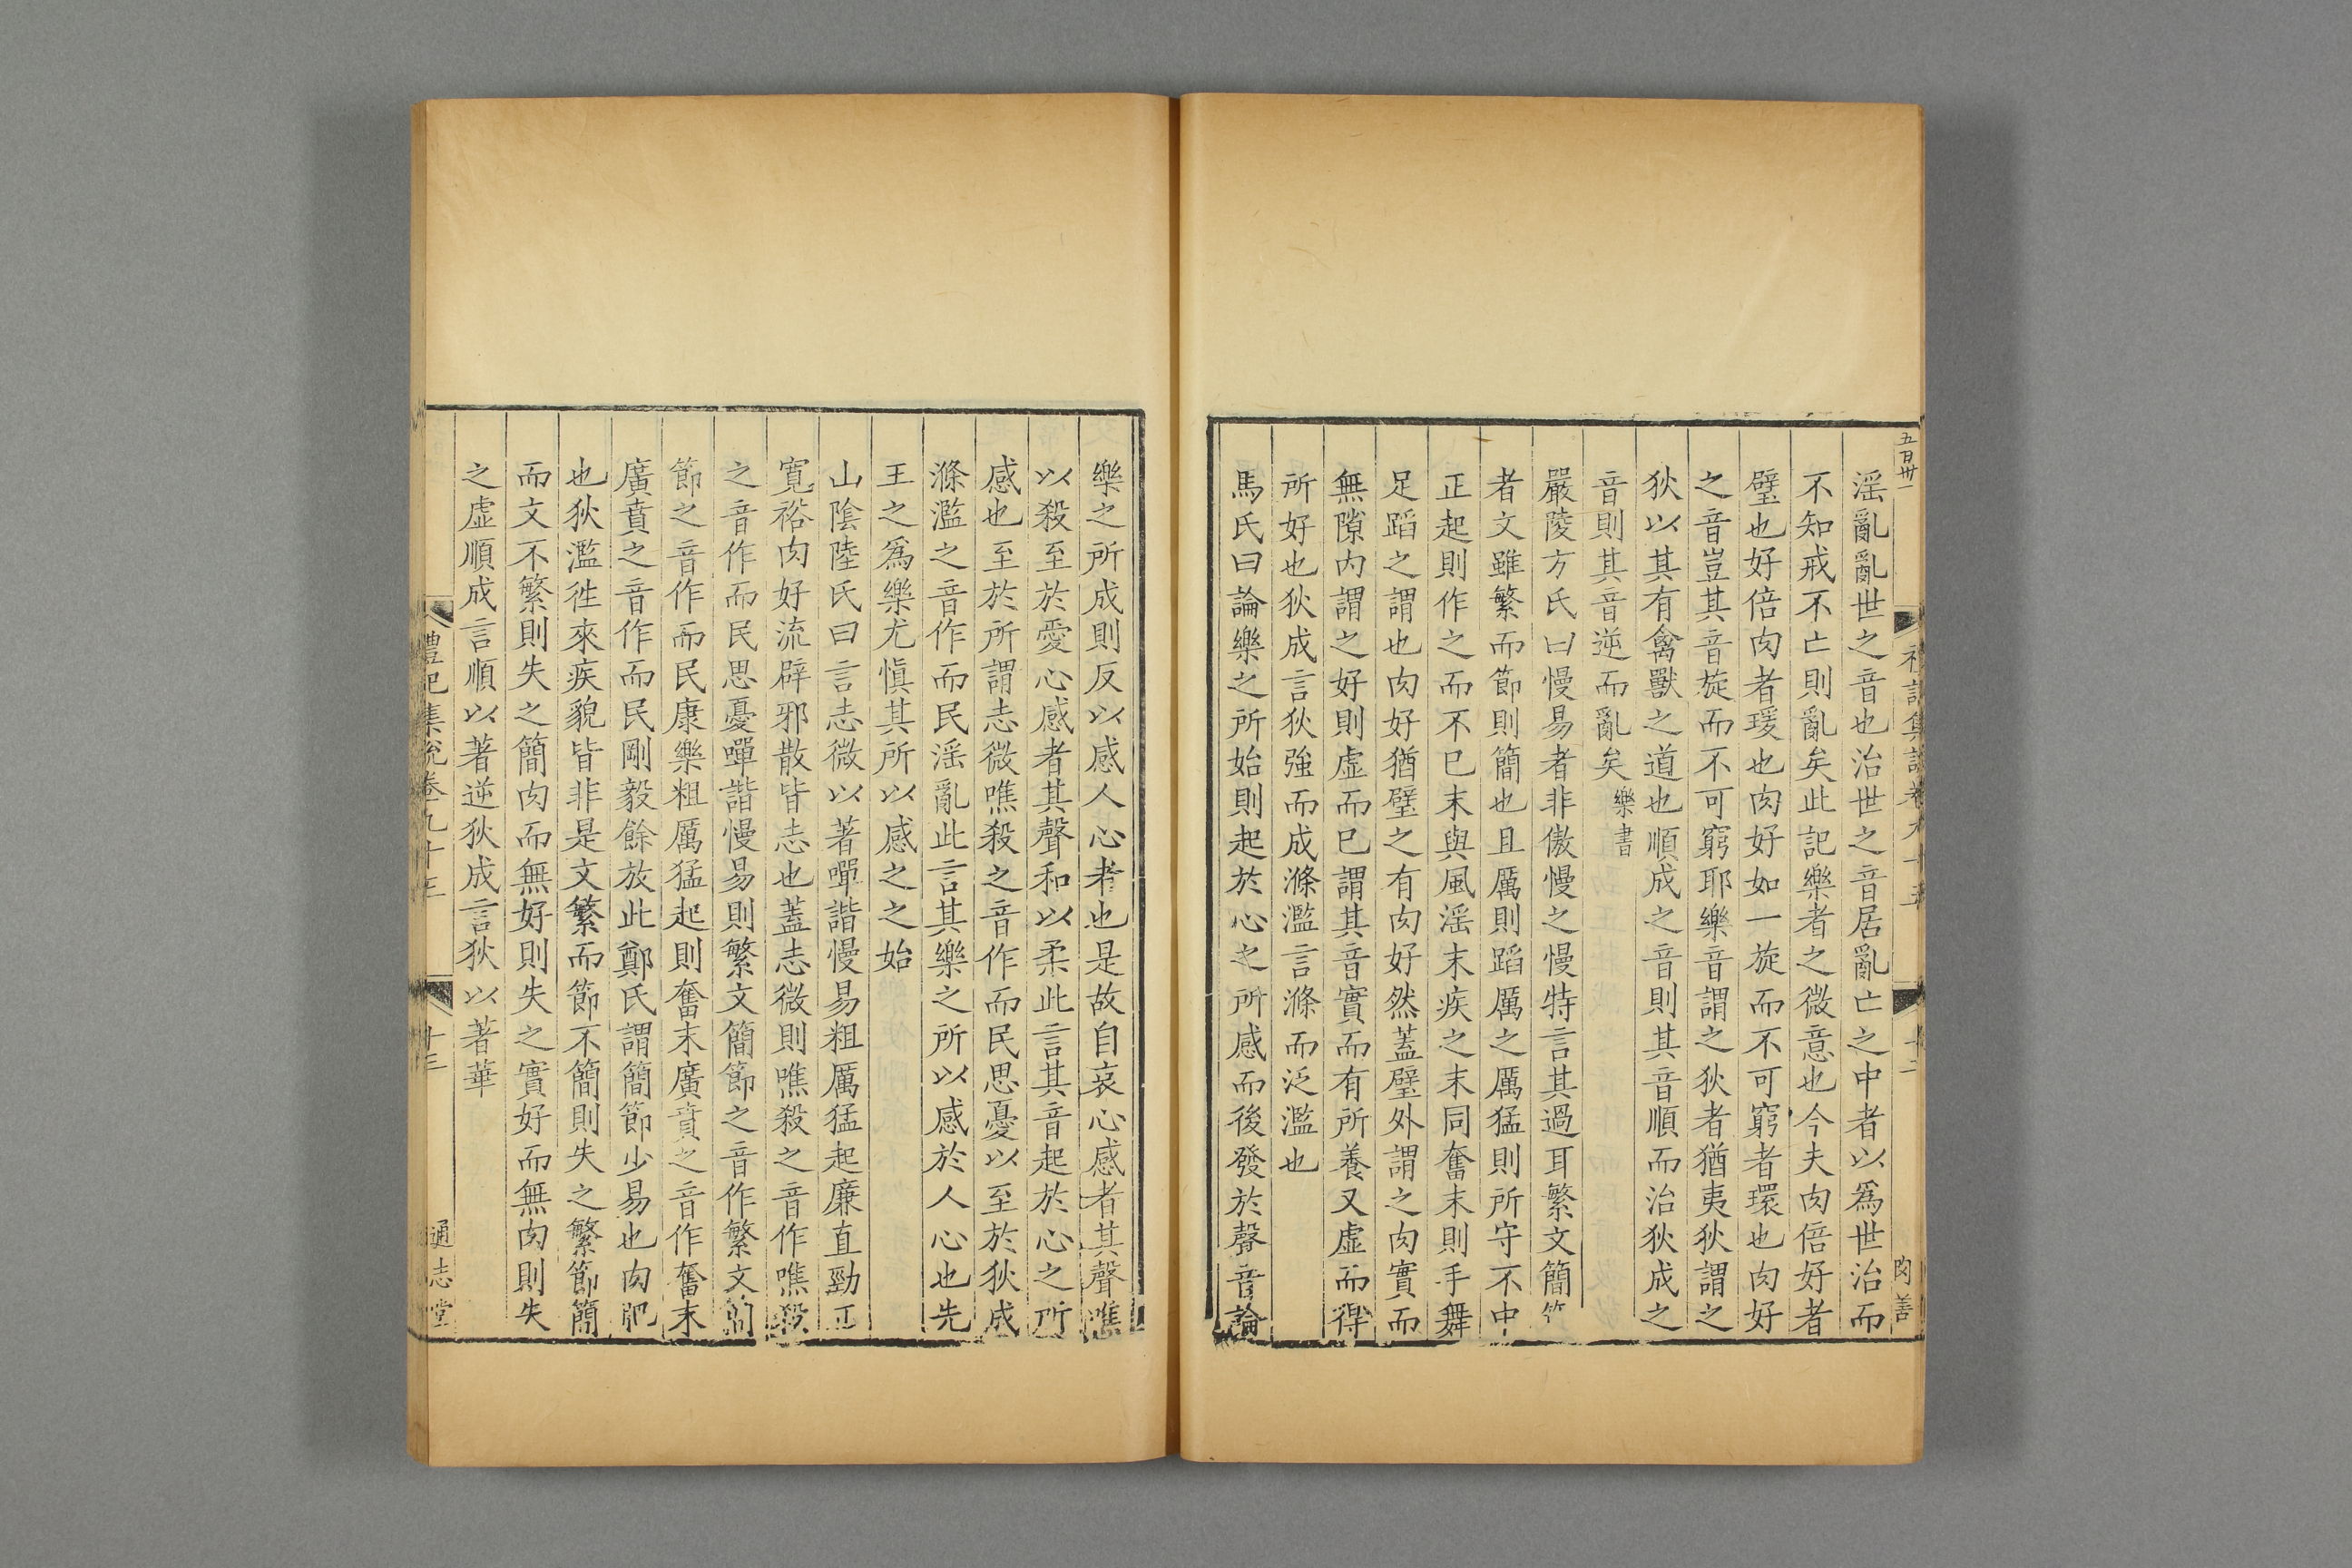 五百卅一
淫亂亂世之音也治世之音居亂亡之中者以為世治而
不知戒不亡則亂矣此記樂者之微意也今夫肉倍好者
璧也好倍肉者瑗也肉好如一旋而不可窮者環也肉好
之音豈其音旋而不可窮耶樂音謂之狄者猶夷狄謂之
狄以其有禽獸之道也順成之音則其音順而治狄成之
音則其音逆而亂矣樂書
嚴陵方氏曰慢易者非傲慢之慢特言其過耳繁文簡節
者文雖繁而節則簡也且厲則蹈厲之厲猛則所守不中
正起則作之而不已末與風淫末疾之末同奮末則手舞
足蹈之謂也肉好猶璧之有肉好然蓋璧外謂之肉實而
無隙内謂之好則虛而已謂其音實而有所養又虛而得
所好也狄成言狄強而成滌濫言滌而泛濫也
馬氏曰論樂之所始則起於心之所感而後發於聲音論
樂之所成則反以感人心者也是故自哀心感者其聲噍
以殺至於愛心感者其聲和以柔此言其音起於心之所
感也至於所謂志微噍殺之音作而民思憂以至於狄成
滌濫之音作而民淫亂此言其樂之所以感於人心也先
王之為樂尤慎其所以感之之始
山陰陸氏曰言志微以著嘽諧慢易粗厲猛起廉直勁正
寛裕肉好流辟邪散皆志也蓋志微則噍殺之音作噍殺
之音作而民思憂嘽諧慢易則繁文簡節之音作繁文簡
節之音作而民康樂粗厲猛起則奮末廣賁之音作奮末
廣賁之音作而民剛毅餘放此鄭氏謂簡節少易也肉肥
也狄濫徃來疾貌皆非是文繁而節不簡則失之繁節簡
而文不繁則失之簡肉而無好則失之實好而無肉則失
之虛順成言順以著逆狄成言狄以著華
禮記集說卷九十三
十三
通志堂